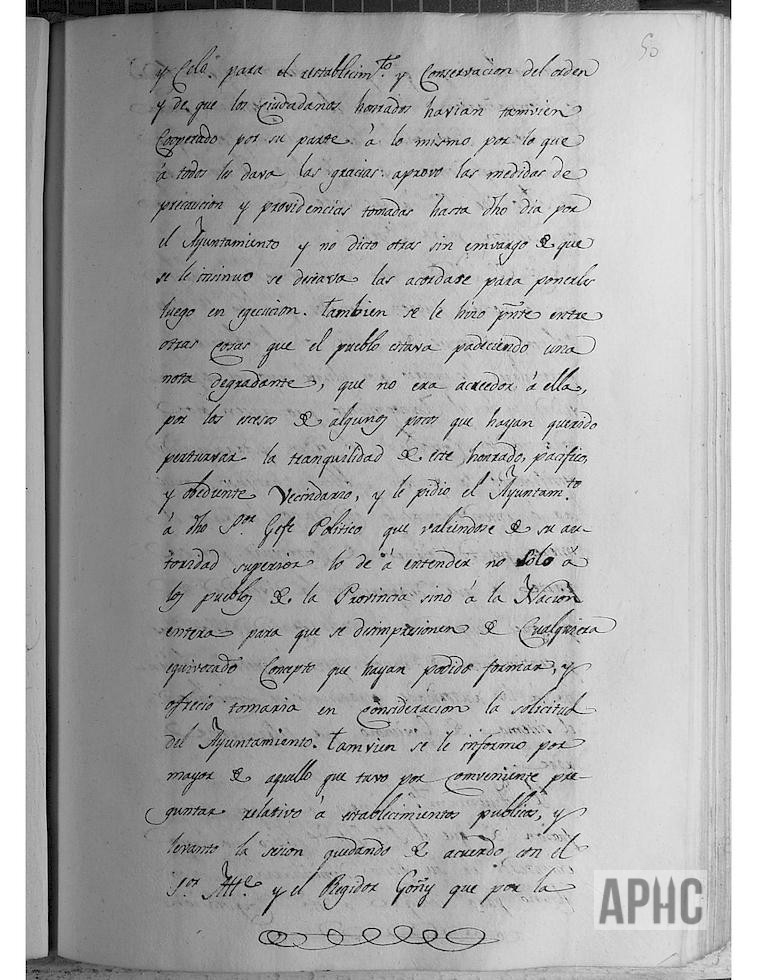 50
y Celo para el restablecim.to y Conservacion del orden
y de que los Ciudadanos honrados havian tamvien
Cooperado por su parte á lo mismo por lo que
á todos les dava las gracias: aprovo las medidas de
precaucion y providencias tomadas hasta dho dia por
el Ayuntamiento y no dictó otras sin emvargo de que
se le insinuó se deseava las acordase para ponerlas
luego en egecucion. Tambien se le hizo pnte entre
otras Cosas que el pueblo estava padeciendo una
nota degradante, que no era acreedor á ella,
por los excesos de algunos pocos que hayan querido
perturvar la tranquilidad de este honrado, pacifico,
y obediente Vecindario, y le pidio el Ayuntam.to
á dho S.or Gefe Politico que valiendose de su au-
toridad superior lo dé á entender no solo á
los pueblos de la Provincia sinó á la Nacion
entera para que se disimpresionen de Cualquiera
equivocado Concepto que hayan podido formar, y
ofrecio tomaria en consideracion la solicitud
del Ayuntamiento. Tamvien se le informó por
mayor de aquello que tuvo por conveniente pre-
guntar relativo á establecimientos publicos, y
levantó la sesion quedando de acuerdo con el
S.or Alt.e y el Regidor Goñy que por la
APHC